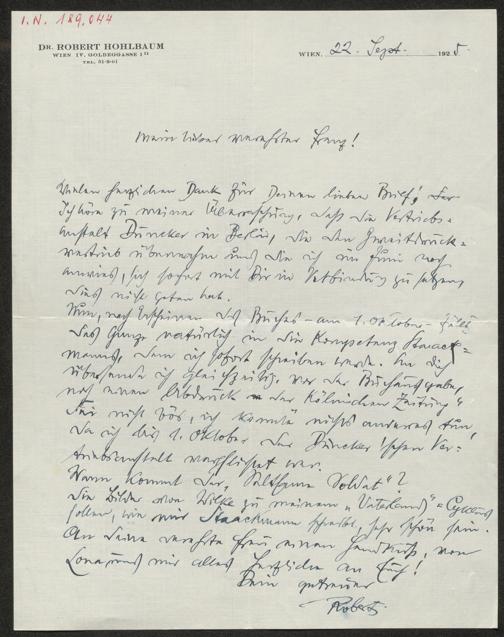 I.N. 189.044
DR. ROBERT HOHLBAUM
WIEN IV. GOLDEGGASSE 1
TEL. 51-9-01
WIEN, 22. Sept. 1925.
Mein lieber verehrter Franz!
Vielen herzlichen Dank für Deinen lieben Brief! Der
Ich höre zu meiner Überraschung, dass die Vertriebs-
anstalt Duncker in Berlin, die den Zweitdruck-
vertrieb übernahm und die ich im Juni noch
anwies, sich sofort mit Dir in Verbindung zu setzen,
dies nicht getan hat.
Nun, nach Erscheinen des Buches - am 1. Oktober - fällt
das Ganze natürlich in die Kompetenz Staack-
manns, dem ich sofort schreiben werde. An Dich
übersende ich gleichzeitig, vor der Buchausgabe,
noch einen Abdruck der "Kölnischen Zeitung".
Sei nicht bös, ich konnte nichts anderes tun,
da ich bis 1. Oktober der Duncker'schen Ver-
triebsanstalt verpflichtet war.
Wann kommt der "Seltsame Soldat"?
Die Bilder von Wilke zu meinem "Vaterland"-Cyklus
sollen, wie mir Staackmann schreibt, sehr schön sein.
An Deine verehrte Frau einen Handkuss, von
Lona und mir alles Herzliche an Euch!
Dein getreuer
Robert